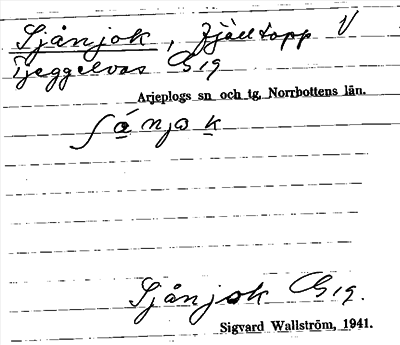 Sjånjok, fjälltopp V
Tjeggelvas G19
Arjeplogs sn och tg, Norrbottens län.
ʃånjo̱k
Sjånjok G19.
Sigvard Wallström, 1941.